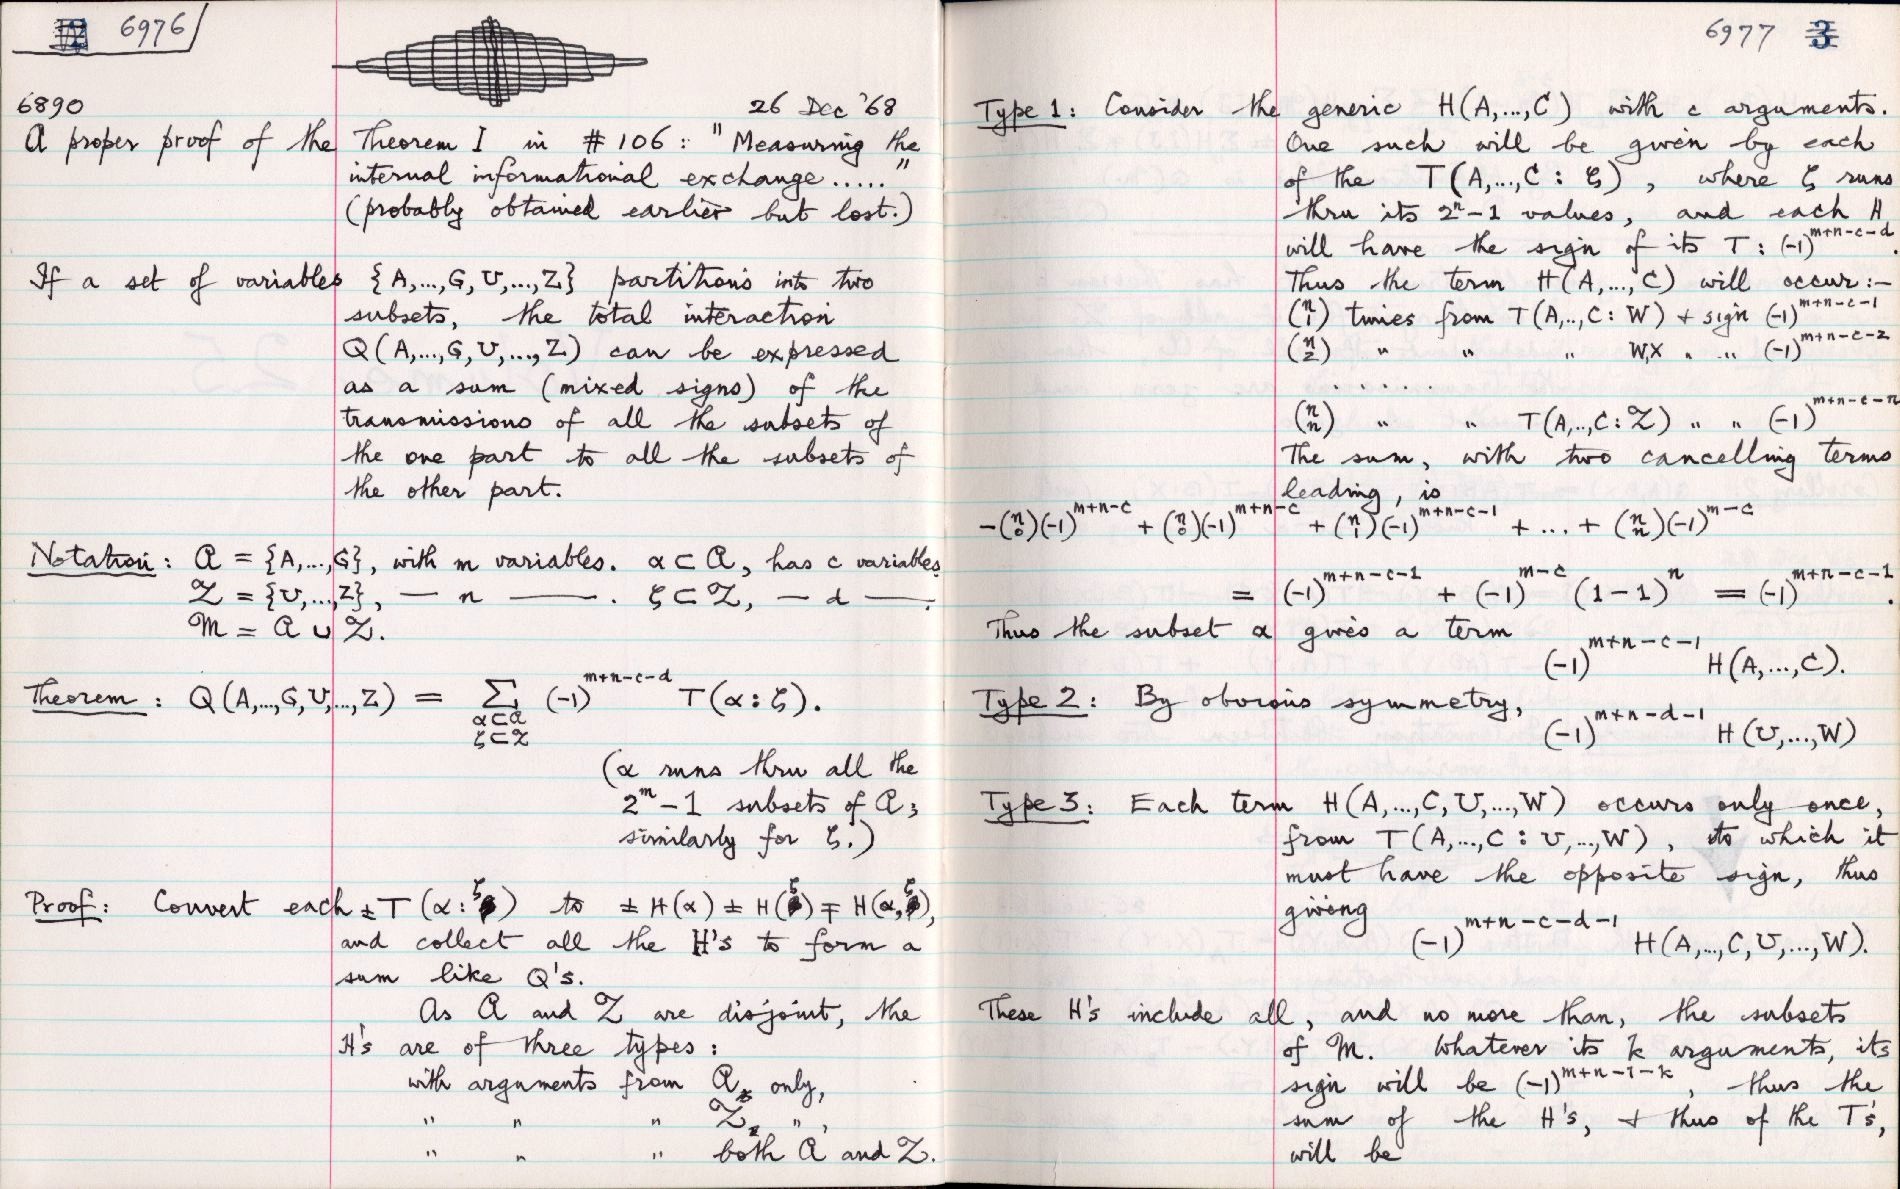 6976
6890
26 Dec '68
A proper proof of the Theorem I in #106: "Measuring the
internal informational exchange....."
(probably obtained earlier but lost.)
If a set of variables {A,...,G,U,...,Z} partitions into two
subsets, the total interaction
Q(A,...,G,U,...,Z) can be expressed
as a sum (mixed signs) of the
transmissions of all the subsets of
the one part to all the subsets of
the other part.
Notation: 𝒜 = {A,...,G}, with m variables. α⊂𝒜, has c variables.
𝒵 = {U,...,Z}, — n ——. ζ⊂𝒵, — d ——.
ℳ = 𝒜 ∪ 𝒵.
Theorem: Q(A,...,G,U,...,Z) = Σ (-1)^{m+n-c-d} T(α:ζ).
α⊂𝒜
ζ⊂𝒵
(α runs thru all the
2^m-1 subsets of 𝒜;
similarly for ζ.)
Proof: Convert each ±T(α:ζ) to ±H(α) ± H(ζ) ∓ H(α,ζ),
and collect all the H's to form a
sum like Q's.
As 𝒜 and 𝒵 are disjoint, the
H's are of three types:
with arguments from 𝒜 only,
" " " 𝒵 ",
" " " both 𝒜 and 𝒵.
6977 3
Type 1: Consider the generic H(A,...,C) with c arguments.
One such will be given by each
of the T(A,...,C : ζ), where ζ runs
thru its 2^n-1 values, and each H
will have the sign of its T: (-1)^{m+n-c-d}.
Thus the term H(A,...,C) will occur:-
(n 1) times from T(A,..,C:W) + sign (-1)^{m+n-c-1}
(n 2) " " " W,X " " (-1)^{m+n-c-2}
......
(n n) " " T(A,..,C:𝒵) " " (-1)^{m+n-c-n}
The sum, with two cancelling terms
leading, is
-(n 0)(-1)^{m+n-c} + (n 0)(-1)^{m+n-c} + (n 1)(-1)^{m+n-c-1} + ... + (n n)(-1)^{m-c}
= (-1)^{m+n-c-1} + (-1)^{m-c} (1-1)^n = (-1)^{m+n-c-1}.
Thus the subset α gives a term
(-1)^{m+n-c-1} H(A,...,C).
Type 2: By obvious symmetry,
(-1)^{m+n-d-1} H(U,...,W)
Type 3: Each term H(A,...,C,U,...,W) occurs only once,
from T(A,...,C : U,...,W), to which it
must have the opposite sign, thus
giving
(-1)^{m+n-c-d-1} H(A,...,C,U,...,W).
These H's include all, and no more than, the subsets
of ℳ. Whatever its k arguments, its
sign will be (-1)^{m+n-1-k}, thus the
sum of the H's, + thus of the T's,
will be